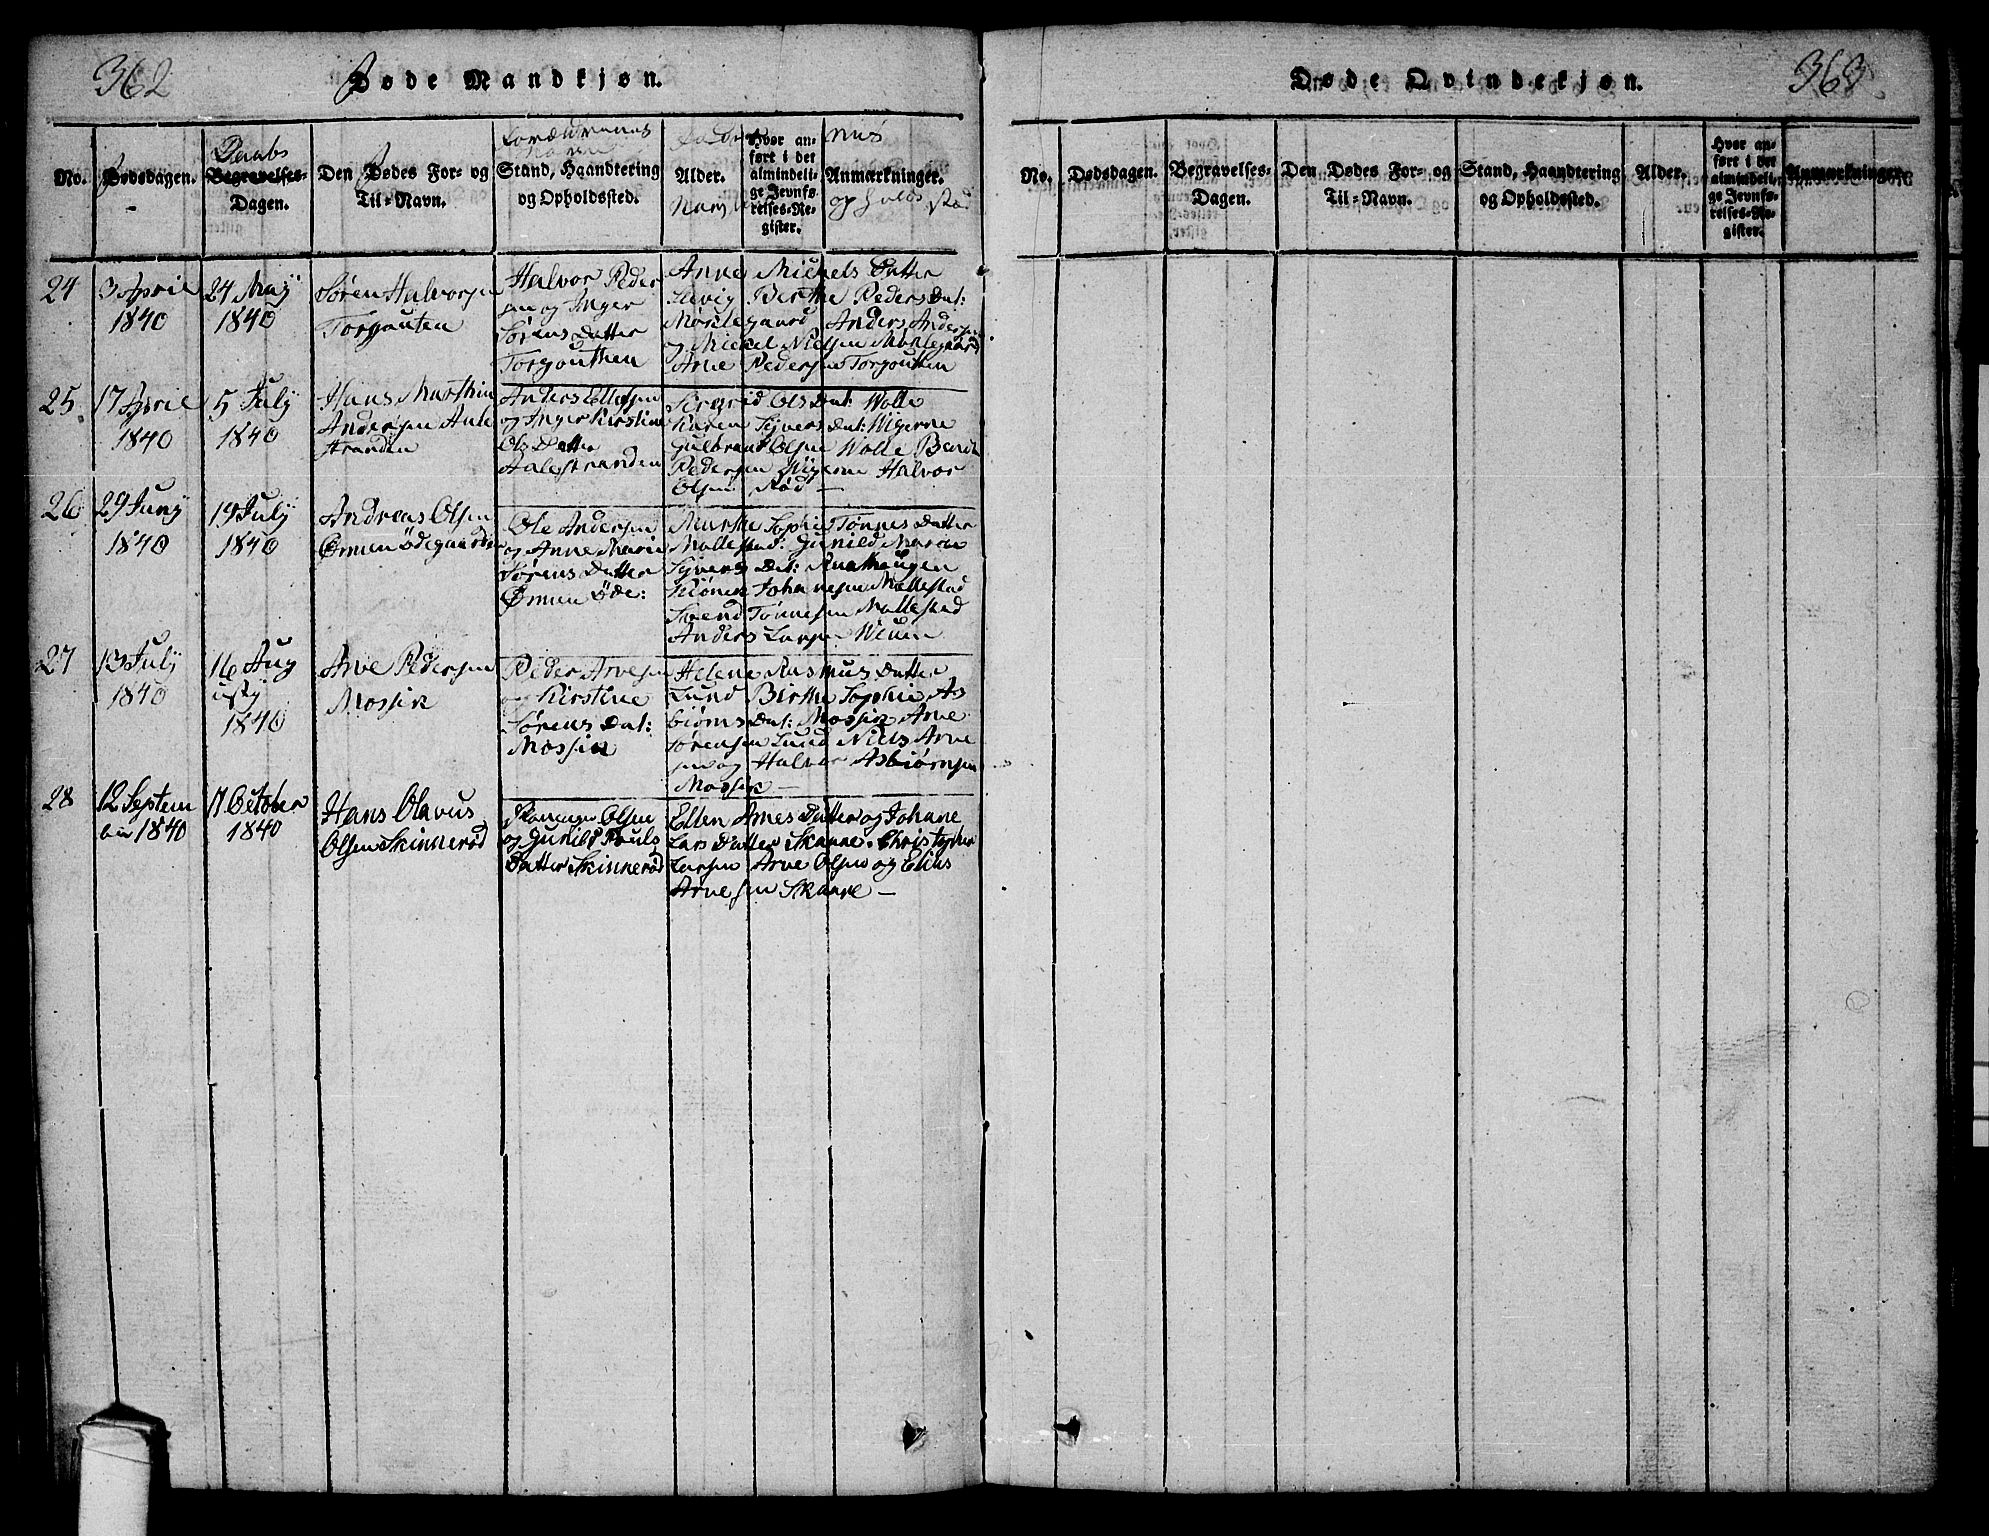 362
Døde Mandkjøn.
No.
Dødsdagen.
Daabs
Begravelses-
Dagen.
Den Dødes For- og
Til-Navn.
Forældrenes
Stand, Haandtering
og Opholdssted.
Alder.
Hvor an-
ført i det
almindeli-
ge Jevnfø-
relses-Re-
gister.
Anmærkninger.
24
3 April
1840
24 Maj
1840
Søren Halvorsen
Torgouten
Halvor Peder
sen og Inger
Sørens Datter
Torgouthen
Anne Mickels Datter
Berthe Peders Dat:
Anders Andersen
og Mickel Nielsen
Arne Pedersen Torgouthen
25
17 April
1840
5 July
1840
Hans Marthin
Andersen Aale
stranden
Anders Ellefsen
og Inger Kirstine
Ols Datter
Aalestranden
Sigrid Ols Dat: Wolle
Karen Syvers Dat: Wigerne
Gulbrand Olsen Wolle Bendt
Pedersen Wigerne Halvor
Olsen Rød —
26
29 Juny
1840
19 July
1840
Andreas Olsen
Ørmen Ødegaarden
Ole Andersen
og Anne Marie
Sørens Datter
Ørmen Øde:
Marthe Sophie Tønnes Datter
Mallestad: Gunild Maren
Syvers Dat:
Johannesen Mallestad
Svend Tønnesen Mallestad
Anders Larsen
27
13 July
1840
16 Aug
usty
1840
Arve Pedersen
Mossik
Peder Arvesen
og Kirstine
Sørens Dat:
Mossik
Helene Rasmus Datter
Lund Birthe Sophie As
biørns Dat: Mossik Arve
Sørensen Lund Niels Arve
sen og Halvor Asbiørnsen
Mossik —
28
12 Septem
ber 1840
11 October
1840
Hans Olavus
Olsen Skinnerød
Olsen
og Gunild Pouls
Datter Skinnerød
Ellen Arnes Datter og Johane
Lars Datter Skaare. Christopher
Larsen Arve Olsen og Elias
Arvesen Skaare —
363
Døde Qvindekjøn.
No.
Dødsdagen.
Begravelses-
Dagen.
Den Dødes For- og
Til-Navn.
Stand, Haandtering
og Opholdssted.
Alder.
Hvor an-
ført i det
almindeli-
ge Jevnfø-
relses-Re-
gister.
Anmærkninger.